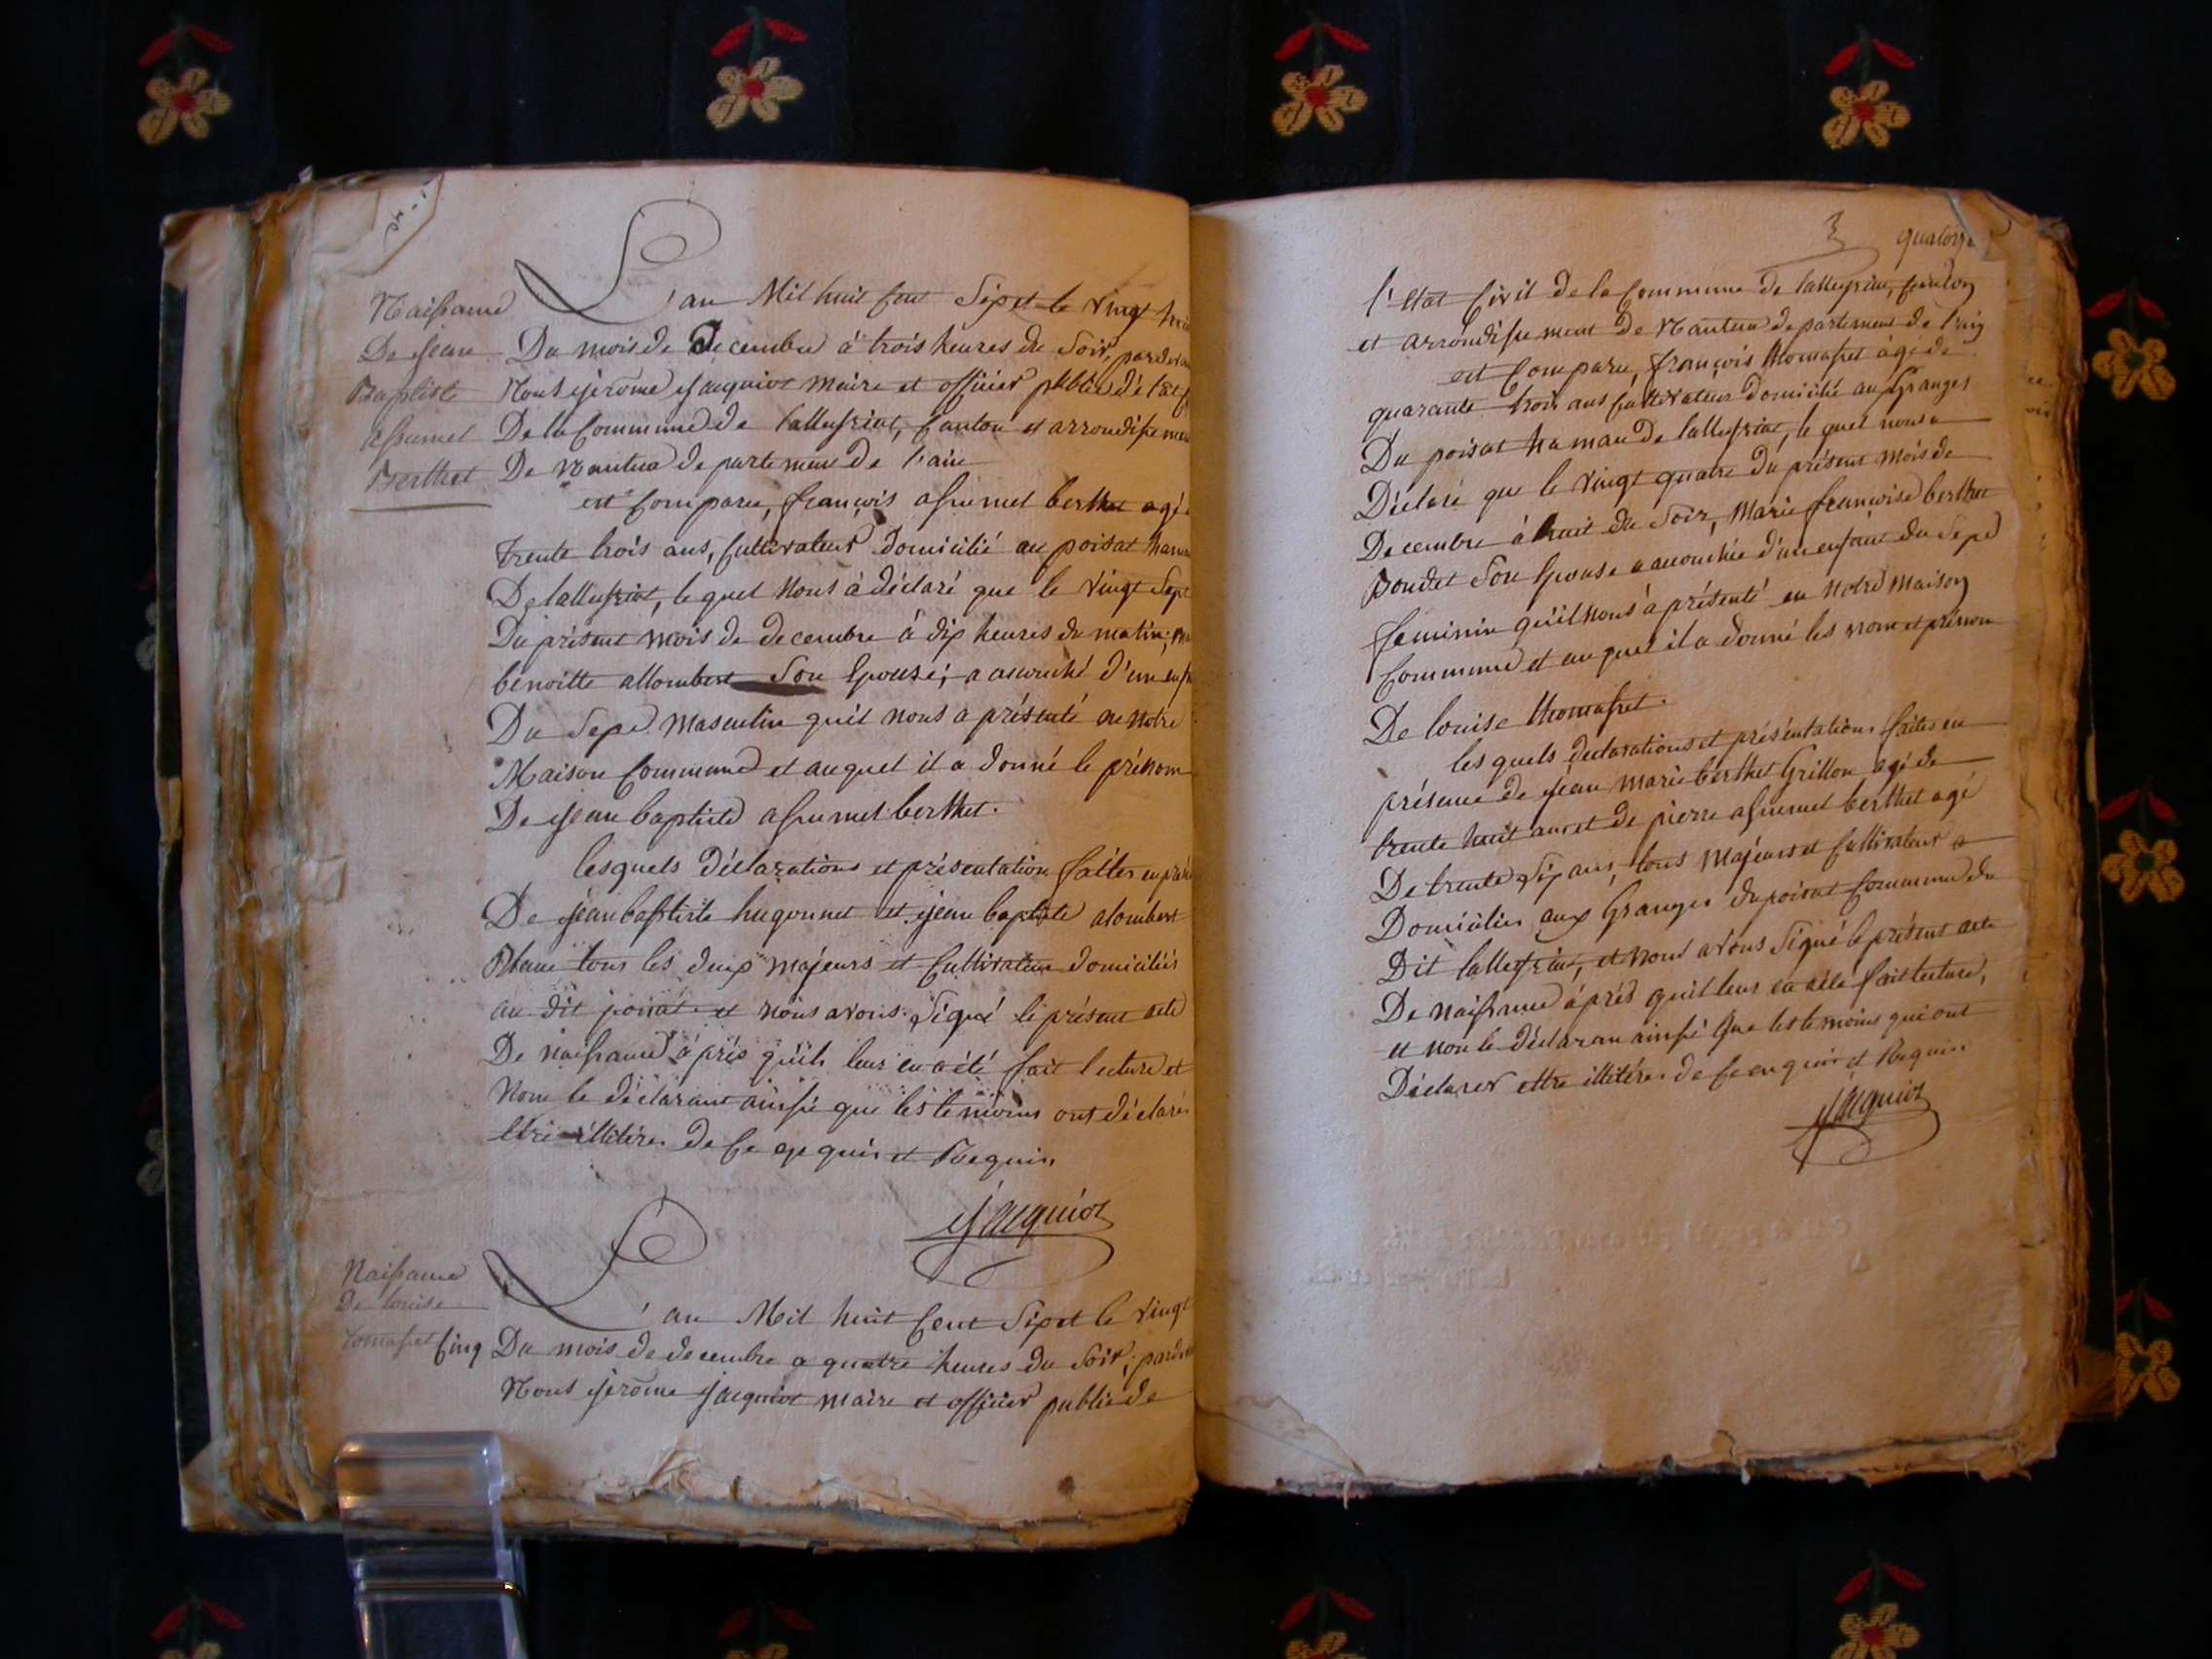 Naissance
De jean
Baptiste
assumel
Berthet
L'an Mil huit Cent Six et le vingt
Du mois de Decembre à trois heures du Soir, pardevan
Nous jérome jacquiot maire et officier public de l'état
De la Commune de lalleyriat, Canton et arrondissemen
De Nantua departement de l'ain
est Comparu, françois assumel berthet agé
trente trois ans, Cultivateur domicilié au poisat hamau
De lalleyriat, le quel Nous à déclaré que le vingt Sept
Du présent mois de decembre à dix heures du matin,
benoitte allombert Son Epouse; a accouché d'un enf
Du Sexe Masculin quil nous a présenté ne Notre
Maison Commune et auquel il a donné le prénom
De jean baptiste assumel berthet.
lesquels déclarations et présentation faites en pré
De jean baptiste hugonnet et jean baptiste alombert
Blanc tous les deux majeurs et Cultivateur domiciliés
au dit poisat et nous avons Signé le présent acte
De naissance à près quils leur en a été fait lecture et
Non le déclarant ainsi que les temoins ont déclarés
etre illitérés de Ce enquis et Requis
jacquiot
Naissance
De louise
tomasset
L'an Mil huit Cent Six et le vingt
Cinq Du mois de decembre a quatre heures du Soir, parde
Nous jérome jacquiot maire et officier public de
3 quatorze
l'état Civil de la Commune de lalleyriat, Canton
et arrondissement de Nantua departement de l'ain
est Comparu, françois thomasset àgé de
quarante trois ans Cultivateur domicilié aux Granges
Du poisat hamau De lalleyriat, le quel nous a
Déclaré que le vingt quatre du présent mois de
Decembre à huit du Soir, Marie françoise berthet
Bondet Son Epouse a accouchée d'un enfant du Sexe
feminin qu'il nous à présenté en Notre Maison
Commune et auquel il a donné les nom et prénom
De louise thomasset.
les quels declarations et présentations faites en
présence de jean marie berthet Grillon agé de
trente huit ans et de pierre assumel berthet agé
De trente Six ans, tous Majeurs et Cultivateur
Domiciliés aux Granges du poisat Commune du
Dit lalleyriat, et nous avons Signé le présent acte
De naissance àprès quil leur en a été fait lecture,
et non le déclaran ainsi que les temoins qui ont
Déclarer ettre illitérés de Ce enquis et Requis
jacquiot